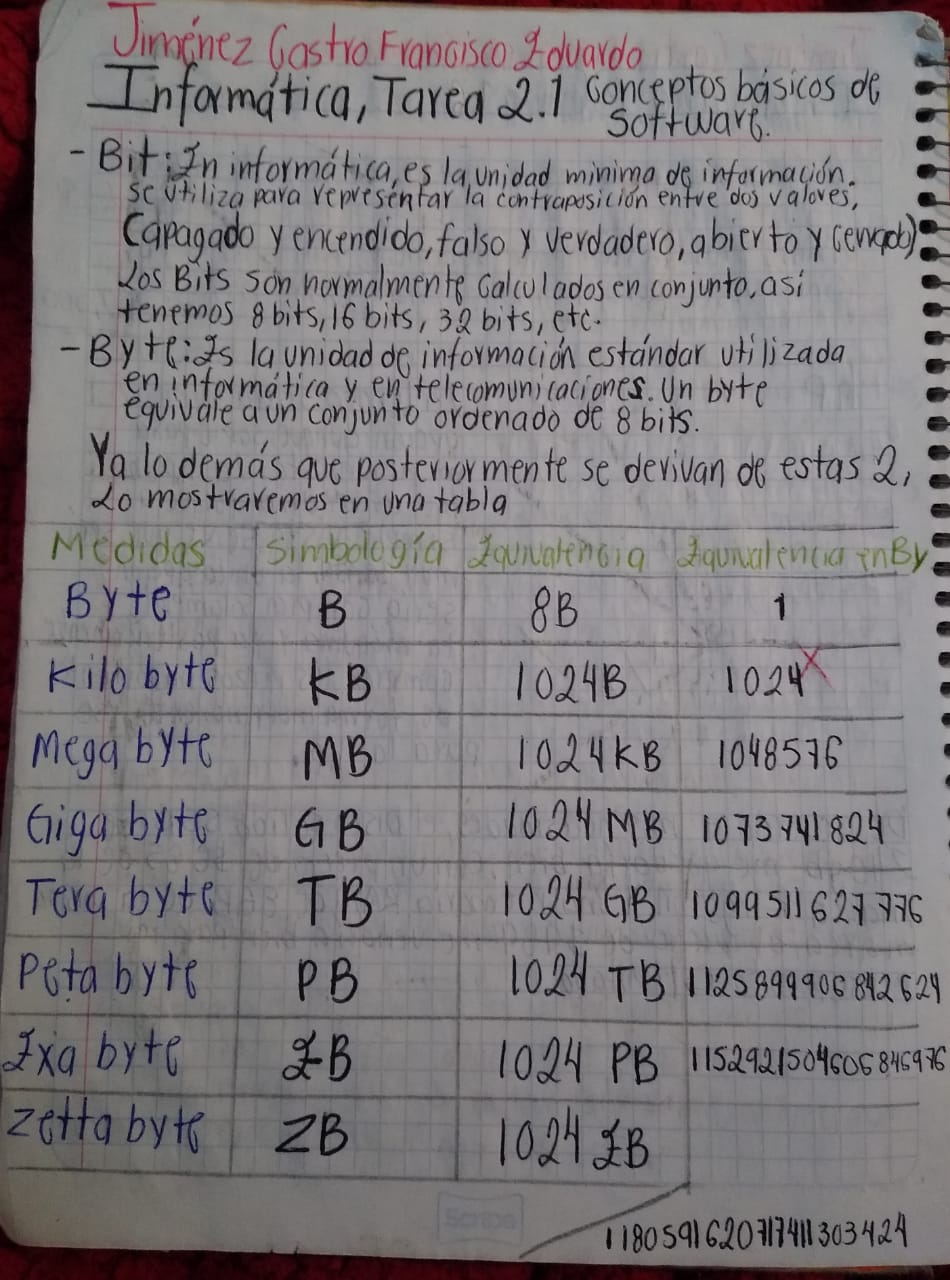 Jiménez Castro Francisco Eduardo
Informática, Tarea 2.1 Conceptos básicos de
software.
- Bit: En informática, es la unidad minima de información.
se utiliza para representar la contraposición entre dos valores,
(apagado y encendido, falso y verdadero, abierto y cerrado)
Los Bits son normalmente calculados en conjunto, así
tenemos 8 bits, 16 bits, 32 bits, etc.
- Byte: Es la unidad de información estándar utilizada
en informática y en telecomunicaciones. Un byte
equivale a un conjunto ordenado de 8 bits.
Ya lo demás que posteriormente se derivan de estas 2,
Lo mostraremos en una tabla
Medidas Simbología Equivalencia Equivalencia en By
Byte B 8B 1
Kilo byte KB 1024B 1024
Mega byte MB 1024 KB 1048576
Giga byte GB 1024 MB 1073741824
Tera byte TB 1024 GB 1099511627776
Peta byte PB 1024 TB 1125899906842624
Exa byte EB 1024 PB 1152921504606846976
Zetta byte ZB 1024 EB
Scribe
1180591620717411303424